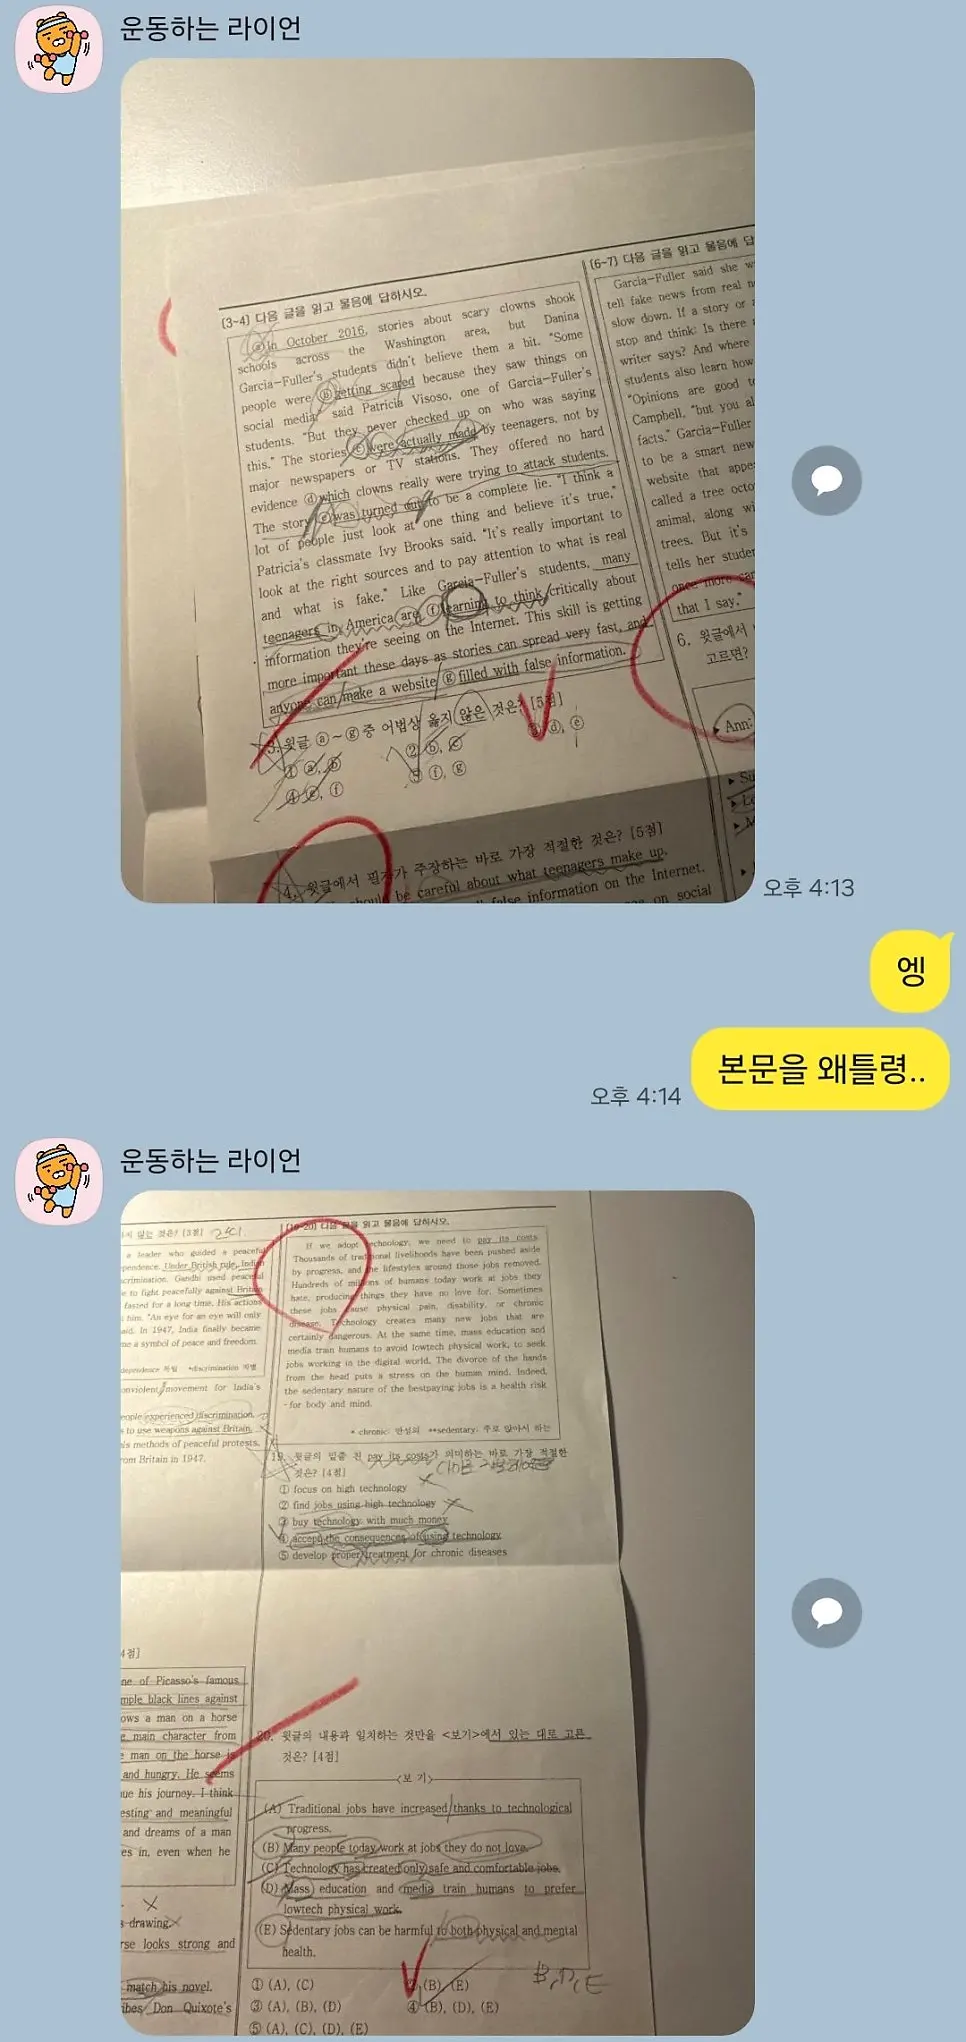 운동하는 라이언
[3~4] 다음 글을 읽고 물음에 답하시오.
ⓐIn October 2016, stories about scary clowns shook
schools across the Washington area, but Danina
Garcia-Fuller's students didn't believe them a bit. "Some
people were ⓑgetting scared because they saw things on
social media," said Patricia Visoso, one of Garcia-Fuller's
students. "But they never checked up on who was saying
this." The stories ⓒwere actually made by teenagers, not by
major newspapers or TV stations. They offered no hard
evidence ⓓwhich clowns really were trying to attack students.
The story ⓔwas turned out to be a complete lie. "I think a
lot of people just look at one thing and believe it's true,"
Patricia's classmate Ivy Brooks said. "It's really important to
look at the right sources and to pay attention to what is real
and what is fake." Like Garcia-Fuller's students, many
teenagers in America are ⓕlearning to think critically about
information they're seeing on the Internet. This skill is getting
more important these days as stories can spread very fast, and
anyone can make a website ⓖfilled with false information.
3. 윗글 ⓐ~ⓖ중 어법상 옳지 않은 것은? [5점]
① ⓐ, ⓑ
② ⓑ, ⓒ
③ ⓓ, ⓔ
④ ⓔ, ⓕ
⑤ ⓕ, ⓖ
4. 윗글에서 필자가 주장하는 바로 가장 적절한 것은? [5점]
be careful about what teenagers make up.
false information on the Internet.
on social
[6~7] 다음 글을 읽고 물음에 답
Garcia-Fuller said she w
tell fake news from real n
slow down. If a story or a
stop and think: Is there
writer says? And where
students also learn how
"Opinions are good to
Campbell, "but you al
facts." Garcia-Fuller
to be a smart new
website that appe
called a tree octo
animal, along wi
trees. But it's
tells her studen
once more
that I say."
6. 윗글에서
고르면?
▸ Ann:
▸ Su
▸ Le
▸ M
오후 4:13
엥
본문을 왜틀령..
오후 4:14
운동하는 라이언
않는 것은? [3점]
a leader who guided a peaceful
pendence. Under British rule, Indi
crimination. Gandhi used peaceful
e to fight peacefully against British
fasted for a long time. His actions
him. "An eye for an eye will only
aid. In 1947, India finally became
me a symbol of peace and freedom.
dependence 독립 *discrimination 차별
onviolent movement for India's
eople experienced discrimination.
s to use weapons against Britain.
is methods of peaceful protests.
rom Britain in 1947.
4점]
ne of Picasso's famous
mple black lines against
ows a man on a horse
e main character from
e man on the horse is
and hungry. He seems
ue his journey. I think
esting and meaningful
and dreams of a man
es in, even when he
s drawing.
rse looks strong and
match his novel.
ibes Don Quixote's
[19~20] 다음 글을 읽고 물음에 답하시오.
If we adopt technology, we need to pay its costs.
Thousands of traditional livelihoods have been pushed aside
by progress, and the lifestyles around those jobs removed.
Hundreds of millions of humans today work at jobs they
hate, producing things they have no love for. Sometimes
these jobs cause physical pain, disability, or chronic
disease. Technology creates many new jobs that are
certainly dangerous. At the same time, mass education and
media train humans to avoid lowtech physical work, to seek
jobs working in the digital world. The divorce of the hands
from the head puts a stress on the human mind. Indeed,
the sedentary nature of the bestpaying jobs is a health risk
- for body and mind.
* chronic: 만성의 **sedentary: 주로 앉아서 하는
19. 윗글의 밑줄 친 pay its costs가 의미하는 바로 가장 적절한
것은? [4점]
① focus on high technology
② find jobs using high technology
③ buy technology with much money
④ accept the consequences of using technology
⑤ develop proper treatment for chronic diseases
20. 윗글의 내용과 일치하는 것만을 <보기>에서 있는 대로 고른
것은? [4점]
<보 기>
(A) Traditional jobs have increased thanks to technological
progress.
(B) Many people today work at jobs they do not love.
(C) Technology has created only safe and comfortable jobs.
(D) Mass education and media train humans to prefer
lowtech physical work.
(E) Sedentary jobs can be harmful to both physical and mental
health.
B, D, E
① (A), (C)
② (B), (E)
③ (A), (B), (D)
④ (B), (D), (E)
⑤ (A), (C), (D), (E)